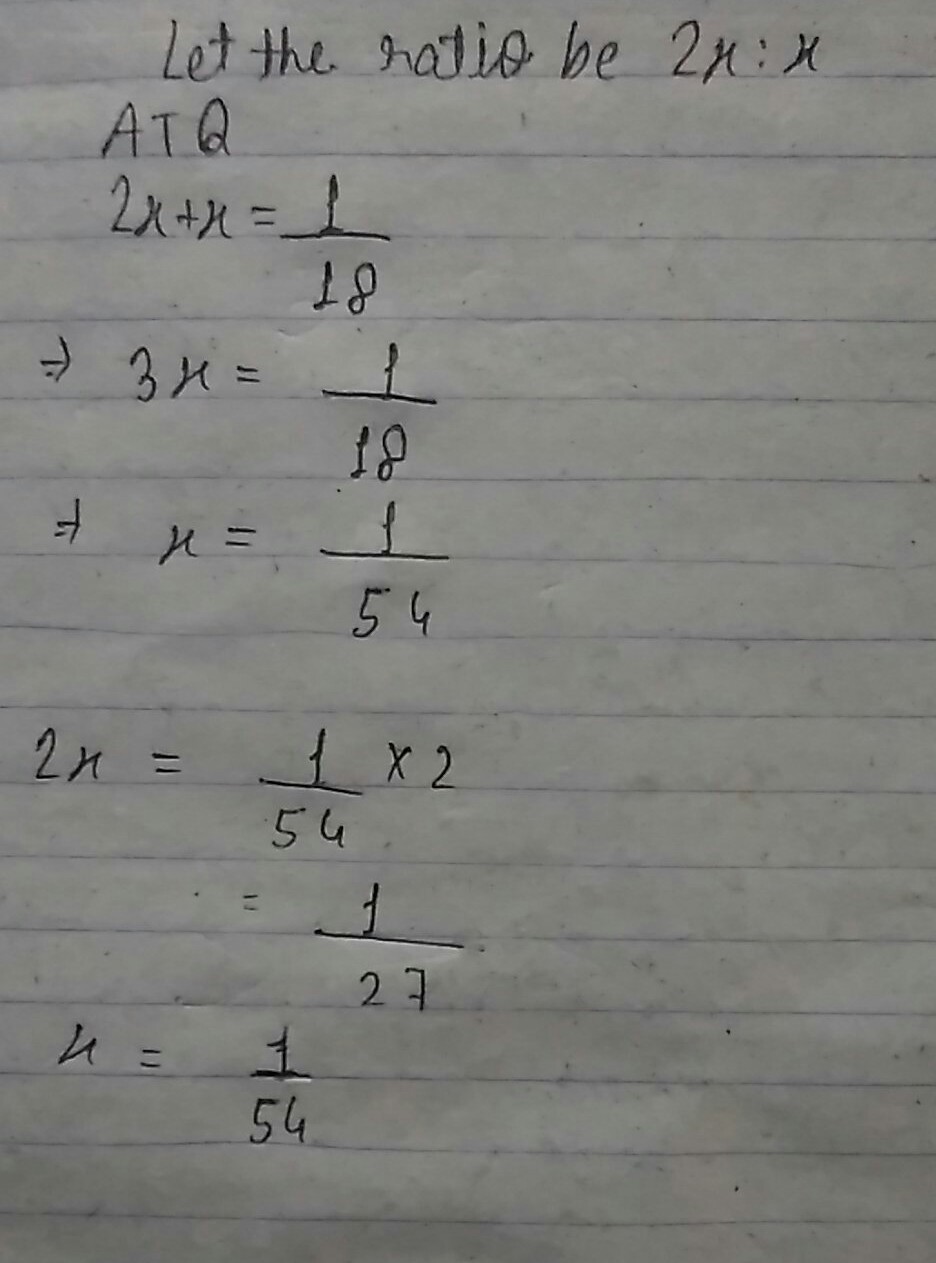 Let the ratio be 2x : x
ATQ
2x+x = 1/18
⇒ 3x = 1/18
⇒ x = 1/54
2x = 1/54 × 2
= 1/27
x = 1/54